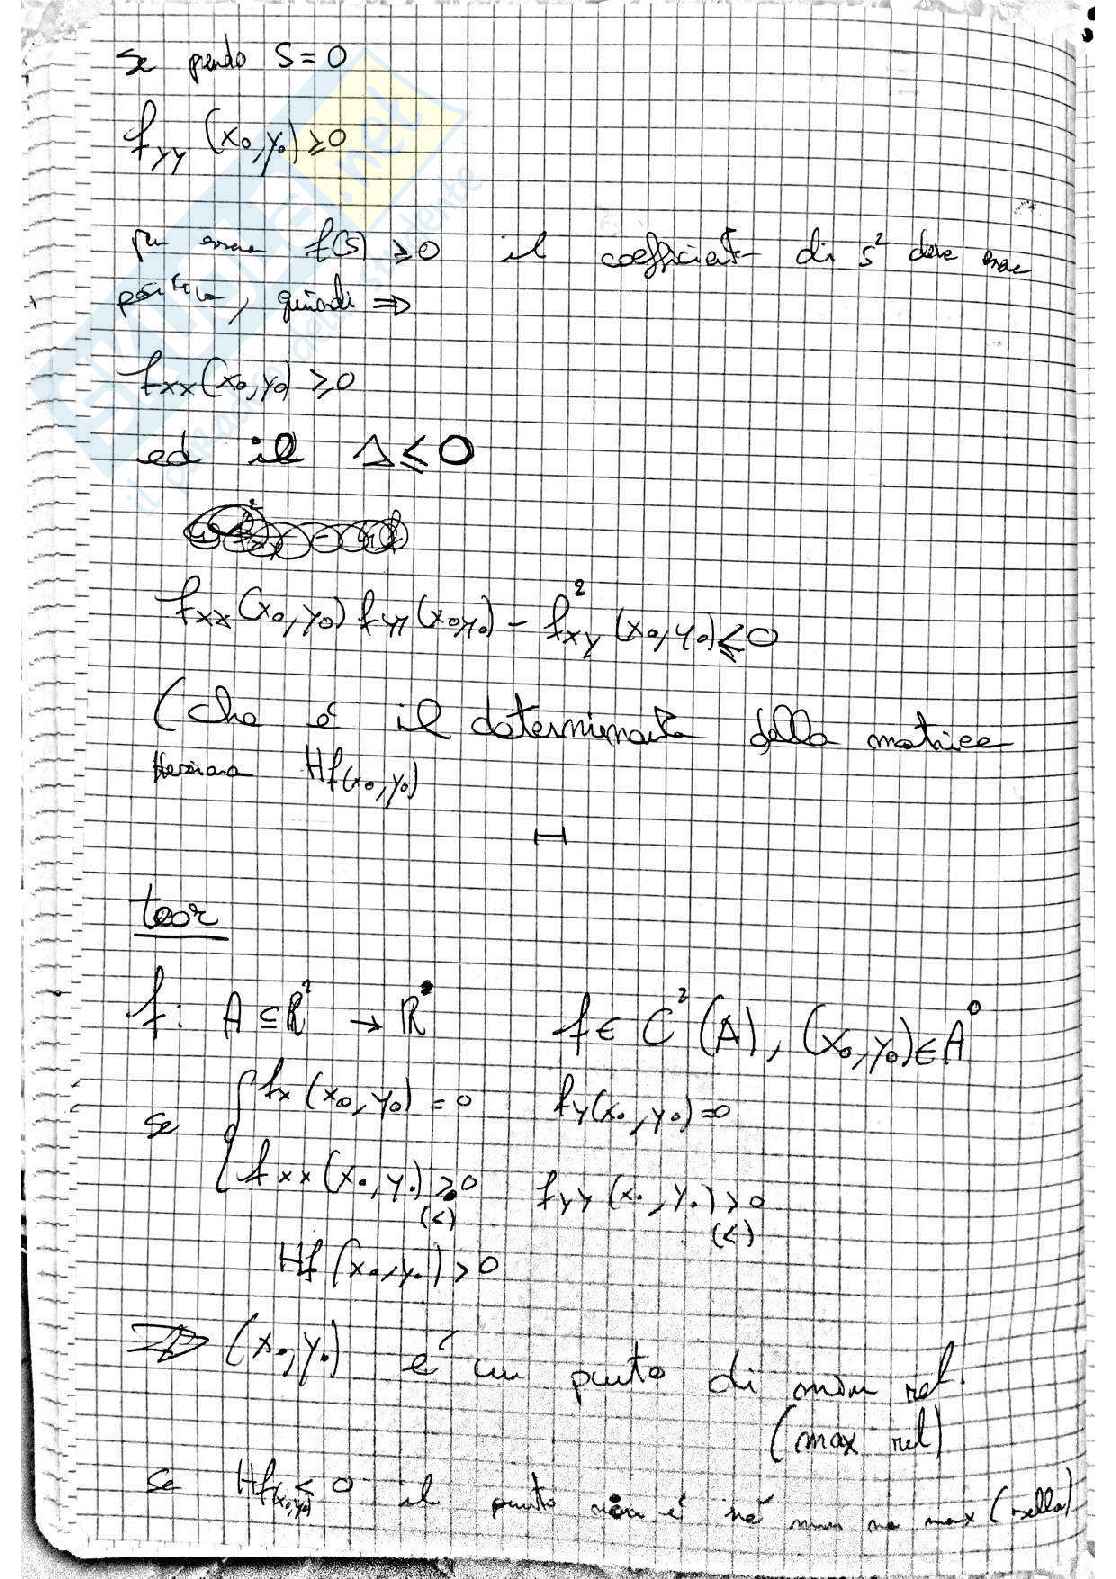 se prendo S = 0
f_yy (x₀,y₀) ≥ 0
per essere f(s) ≥ 0 il coefficient di s² deve essere
positivo, quindi ⇒
f_xx (x₀,y₀) ≥ 0
ed il Δ ≤ 0
f_xx (x₀,y₀) f_yy (x₀,y₀) - f²_xy (x₀,y₀) ≤ 0
(che é il determinante della matrice
Hessiana Hf(x₀,y₀)
teor
f: A ⊆ R² → R f ∈ C² (A), (x₀,y₀) ∈ A⁰
se { f_x (x₀,y₀) = 0 f_y (x₀,y₀) = 0
f_xx (x₀,y₀) > 0 f_yy (x₀,y₀) > 0
(<) (<)
Hf (x₀,y₀) > 0
⇒ (x₀,y₀) é un punto di min rel.
(max rel)
se Hf(x₀,y₀) ≤ 0 il punto non é né min né max (sella)